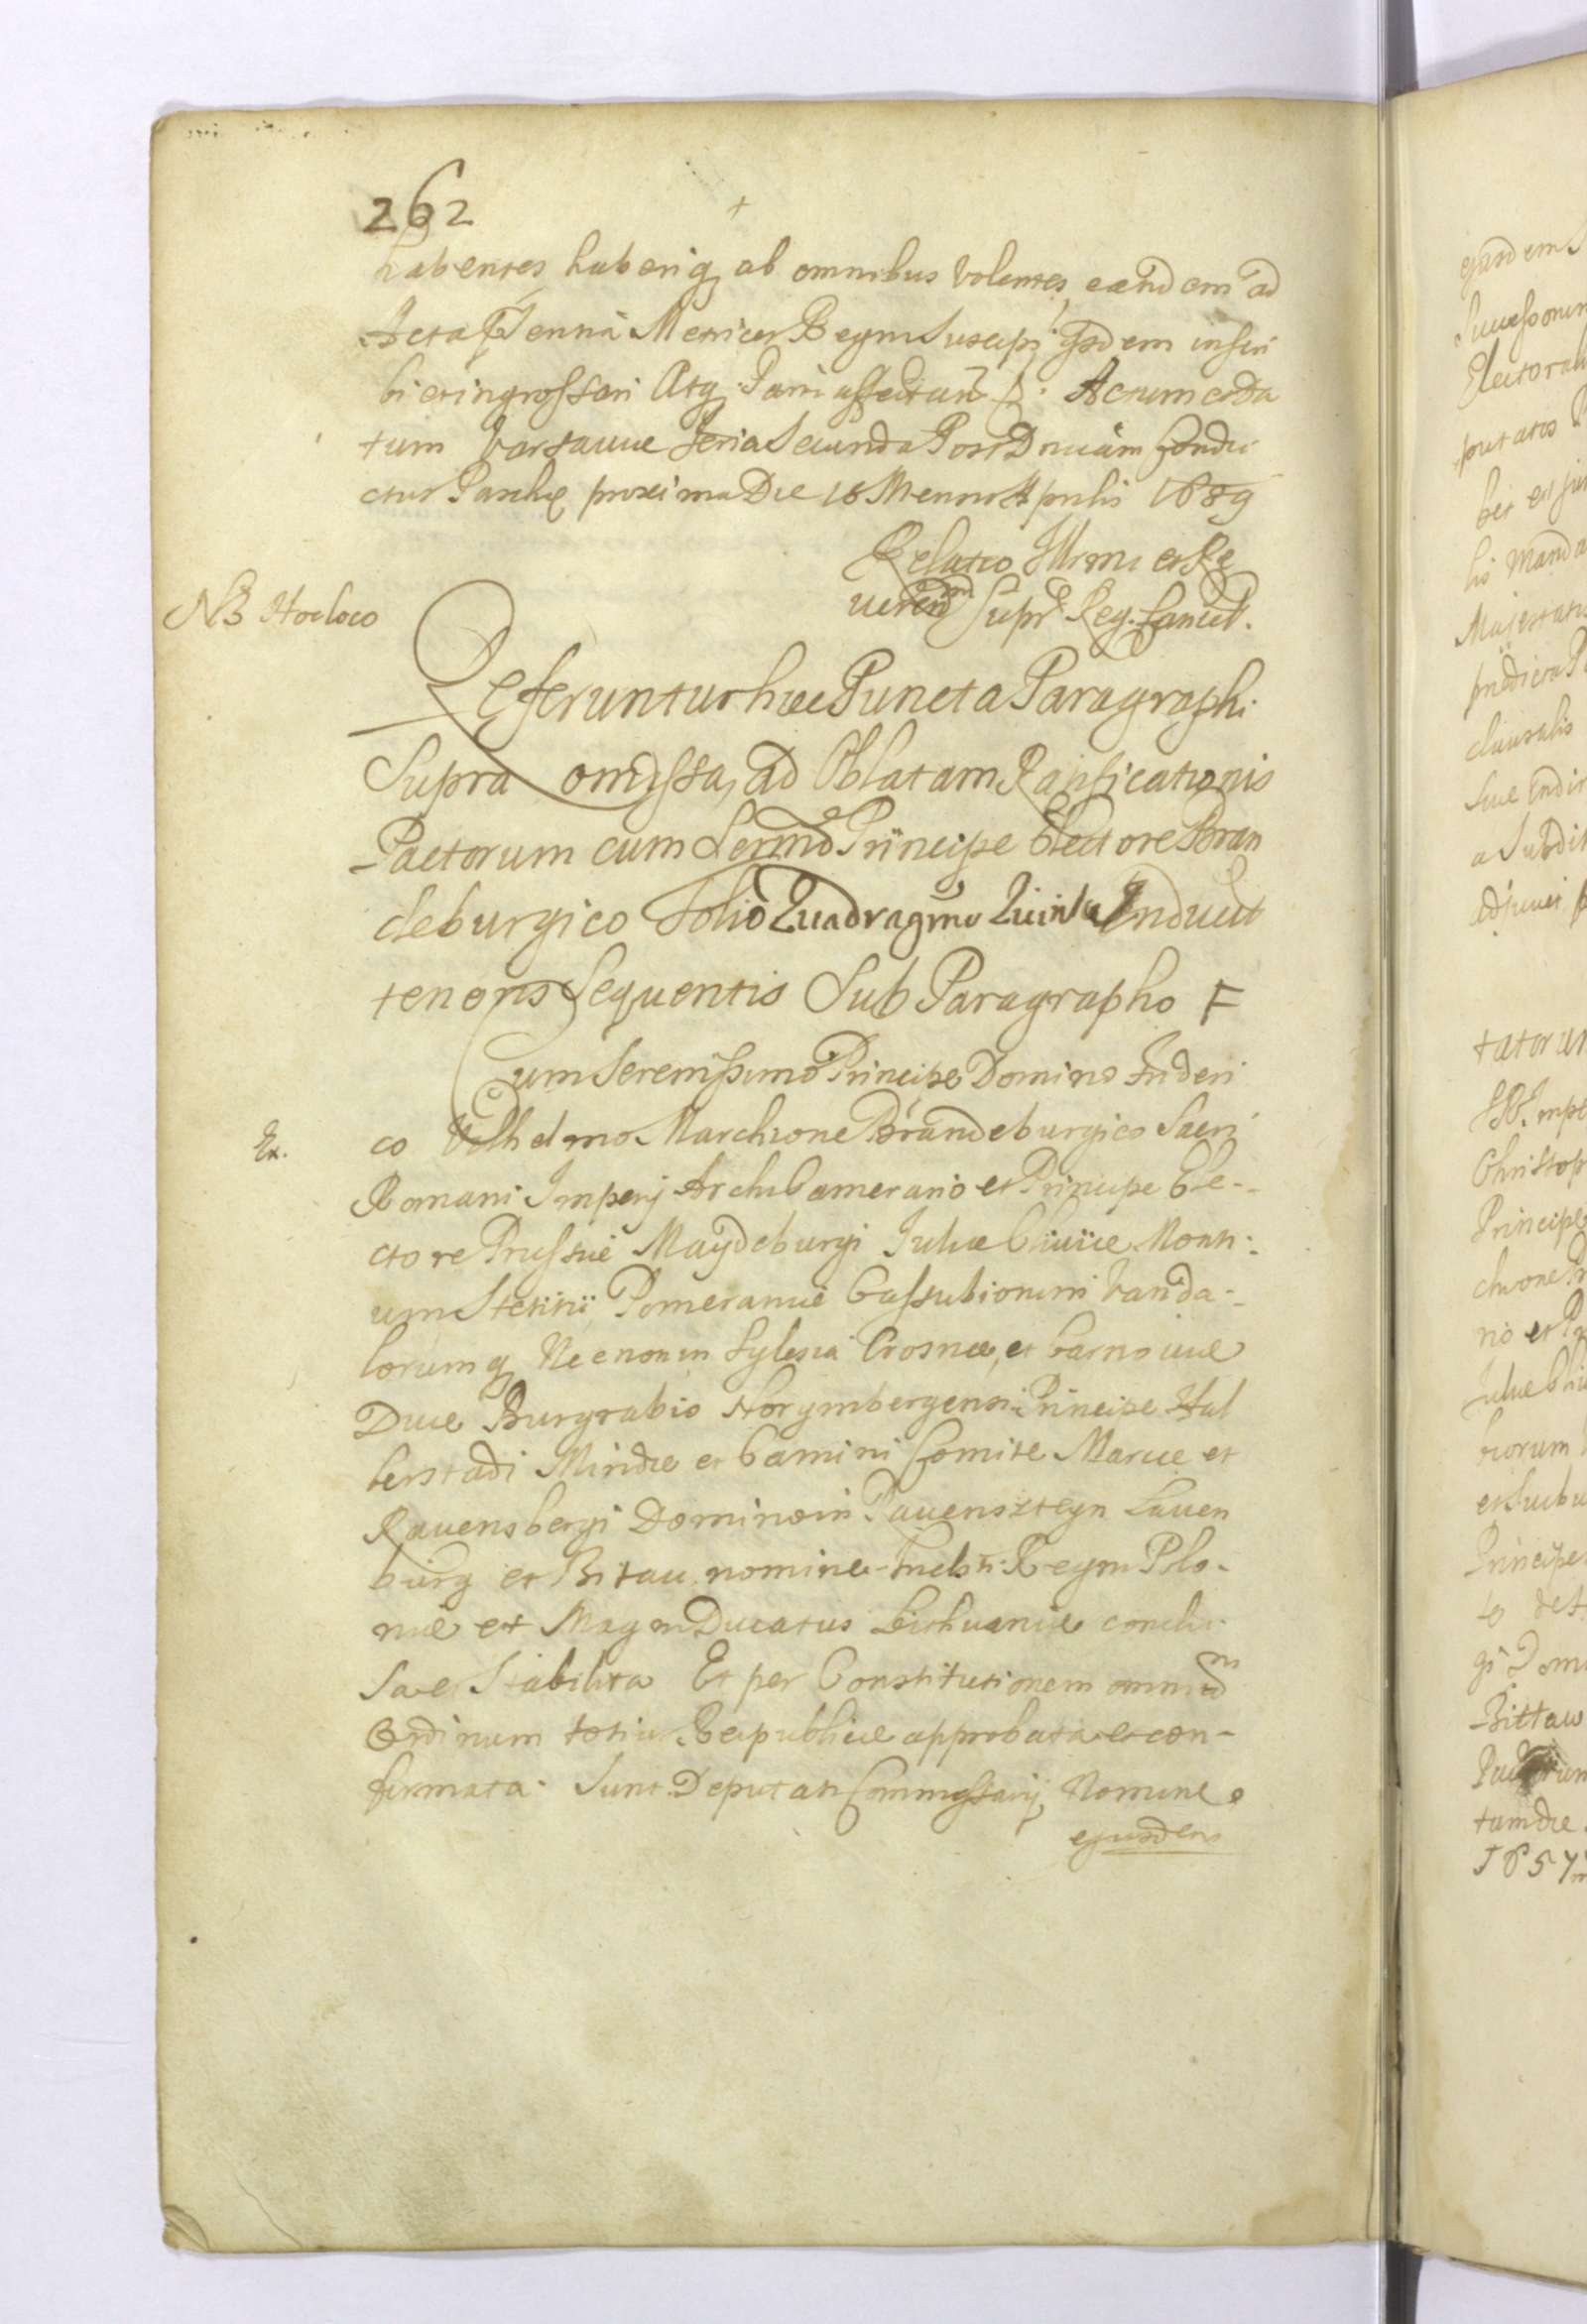 262
habentes haberiq, ab omnibus volentes, eandem ad
Acta Pnnia Metrices Regni Suscipi ijsdem inscri
bi et ingrossari Atq, Acticari Actum et da
tum Varsaviae Feria Secunda Post Dnicam Condu
ctus Paschę proxima Die 18 Mensis Aprilis 1689
Relatio Illrmi et Re
verend Supr Reg. Cancel.
NB Hoc loco
Referuntur haec Puncta Paragraphi
Supra omissa, ad Oblatam Ratificationis
Pactorum cum Sermo Principe Electore Bran
deburgico Folio Quadragmo Quinto Induct
tenoris Sequentis Sub Paragrapho F
Cum Serenissimo Principe Domino Frideri
Ex.
co Vilhelmo Marchione Brandeburgico Sacri
Romani Imperij Archi Camerario et Principe Ele-
ctore Prussiae Magdeburgi Juliae Cliviae Monti-
um Stetini Pomeraniae Cassubiorum Vanda-
lorumq, Necnon in Sylesia Crosnae, et Carnoviae
Duce Burgrabio Norymbergensi Principe Hal
berstadi Mindae et Camini Comite Marcae et
Ravensbergi Domino in Ravensteyn Lauen
burg et Bitau nomine Inclyti Regni Polo-
niae et Magni Ducatus Lithuaniae conclu-
sa et Stabilita Et per Constitutionem omnium
Ordinum totius Reipublicae approbata et con-
firmata. Sunt Deputati Commissarij Nomine
ejusdem
ejusdem S
Successorum
Electorali
putatos
bet et
lis Manda
Majestatis
praedicta P
clausulis
suae
a Subdit
adjunct
Imper
Christop
Principe
chione
rio et P
Juliae Cli
biorum
Principe
gi Domi
Bittaw
tamdie
1657